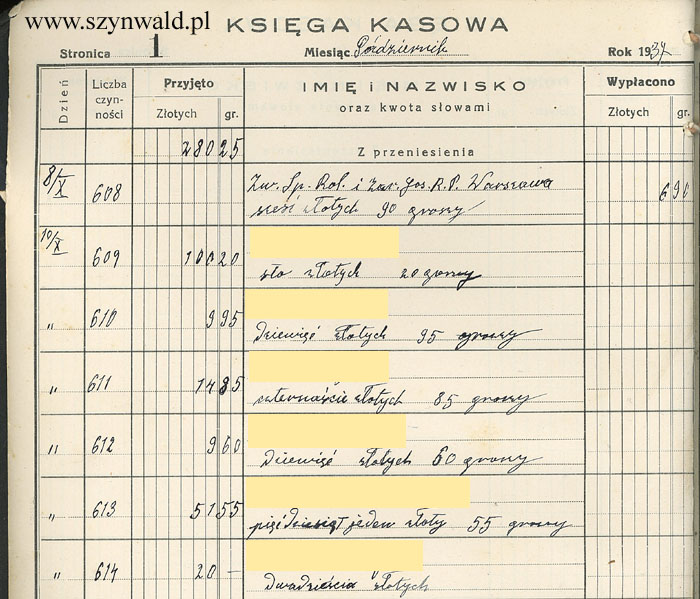 www.szynwald.pl
KSIĘGA KASOWA
Stronica 1 Miesiąc Październik Rok 1937
Dzień Liczba czynności Przyjęto IMIĘ i NAZWISKO Wypłacono
Złotych gr. oraz kwota słowami Złotych gr.
280 25 Z przeniesienia
8/X 608 Zw. Sp. Rol. i Zar. Gos. R.P. Warszawa 6 90
sześć złotych 90 groszy
10/X 609 100 20
sto złotych 20 groszy
" 610 9 95
dziewięć złotych 95 groszy
" 611 14 85
czternaście złotych 85 groszy
" 612 9 60
dziewięć złotych 60 groszy
" 613 51 55
pięćdziesiąt jeden złoty 55 groszy
" 614 20 —
dwadzieścia złotych